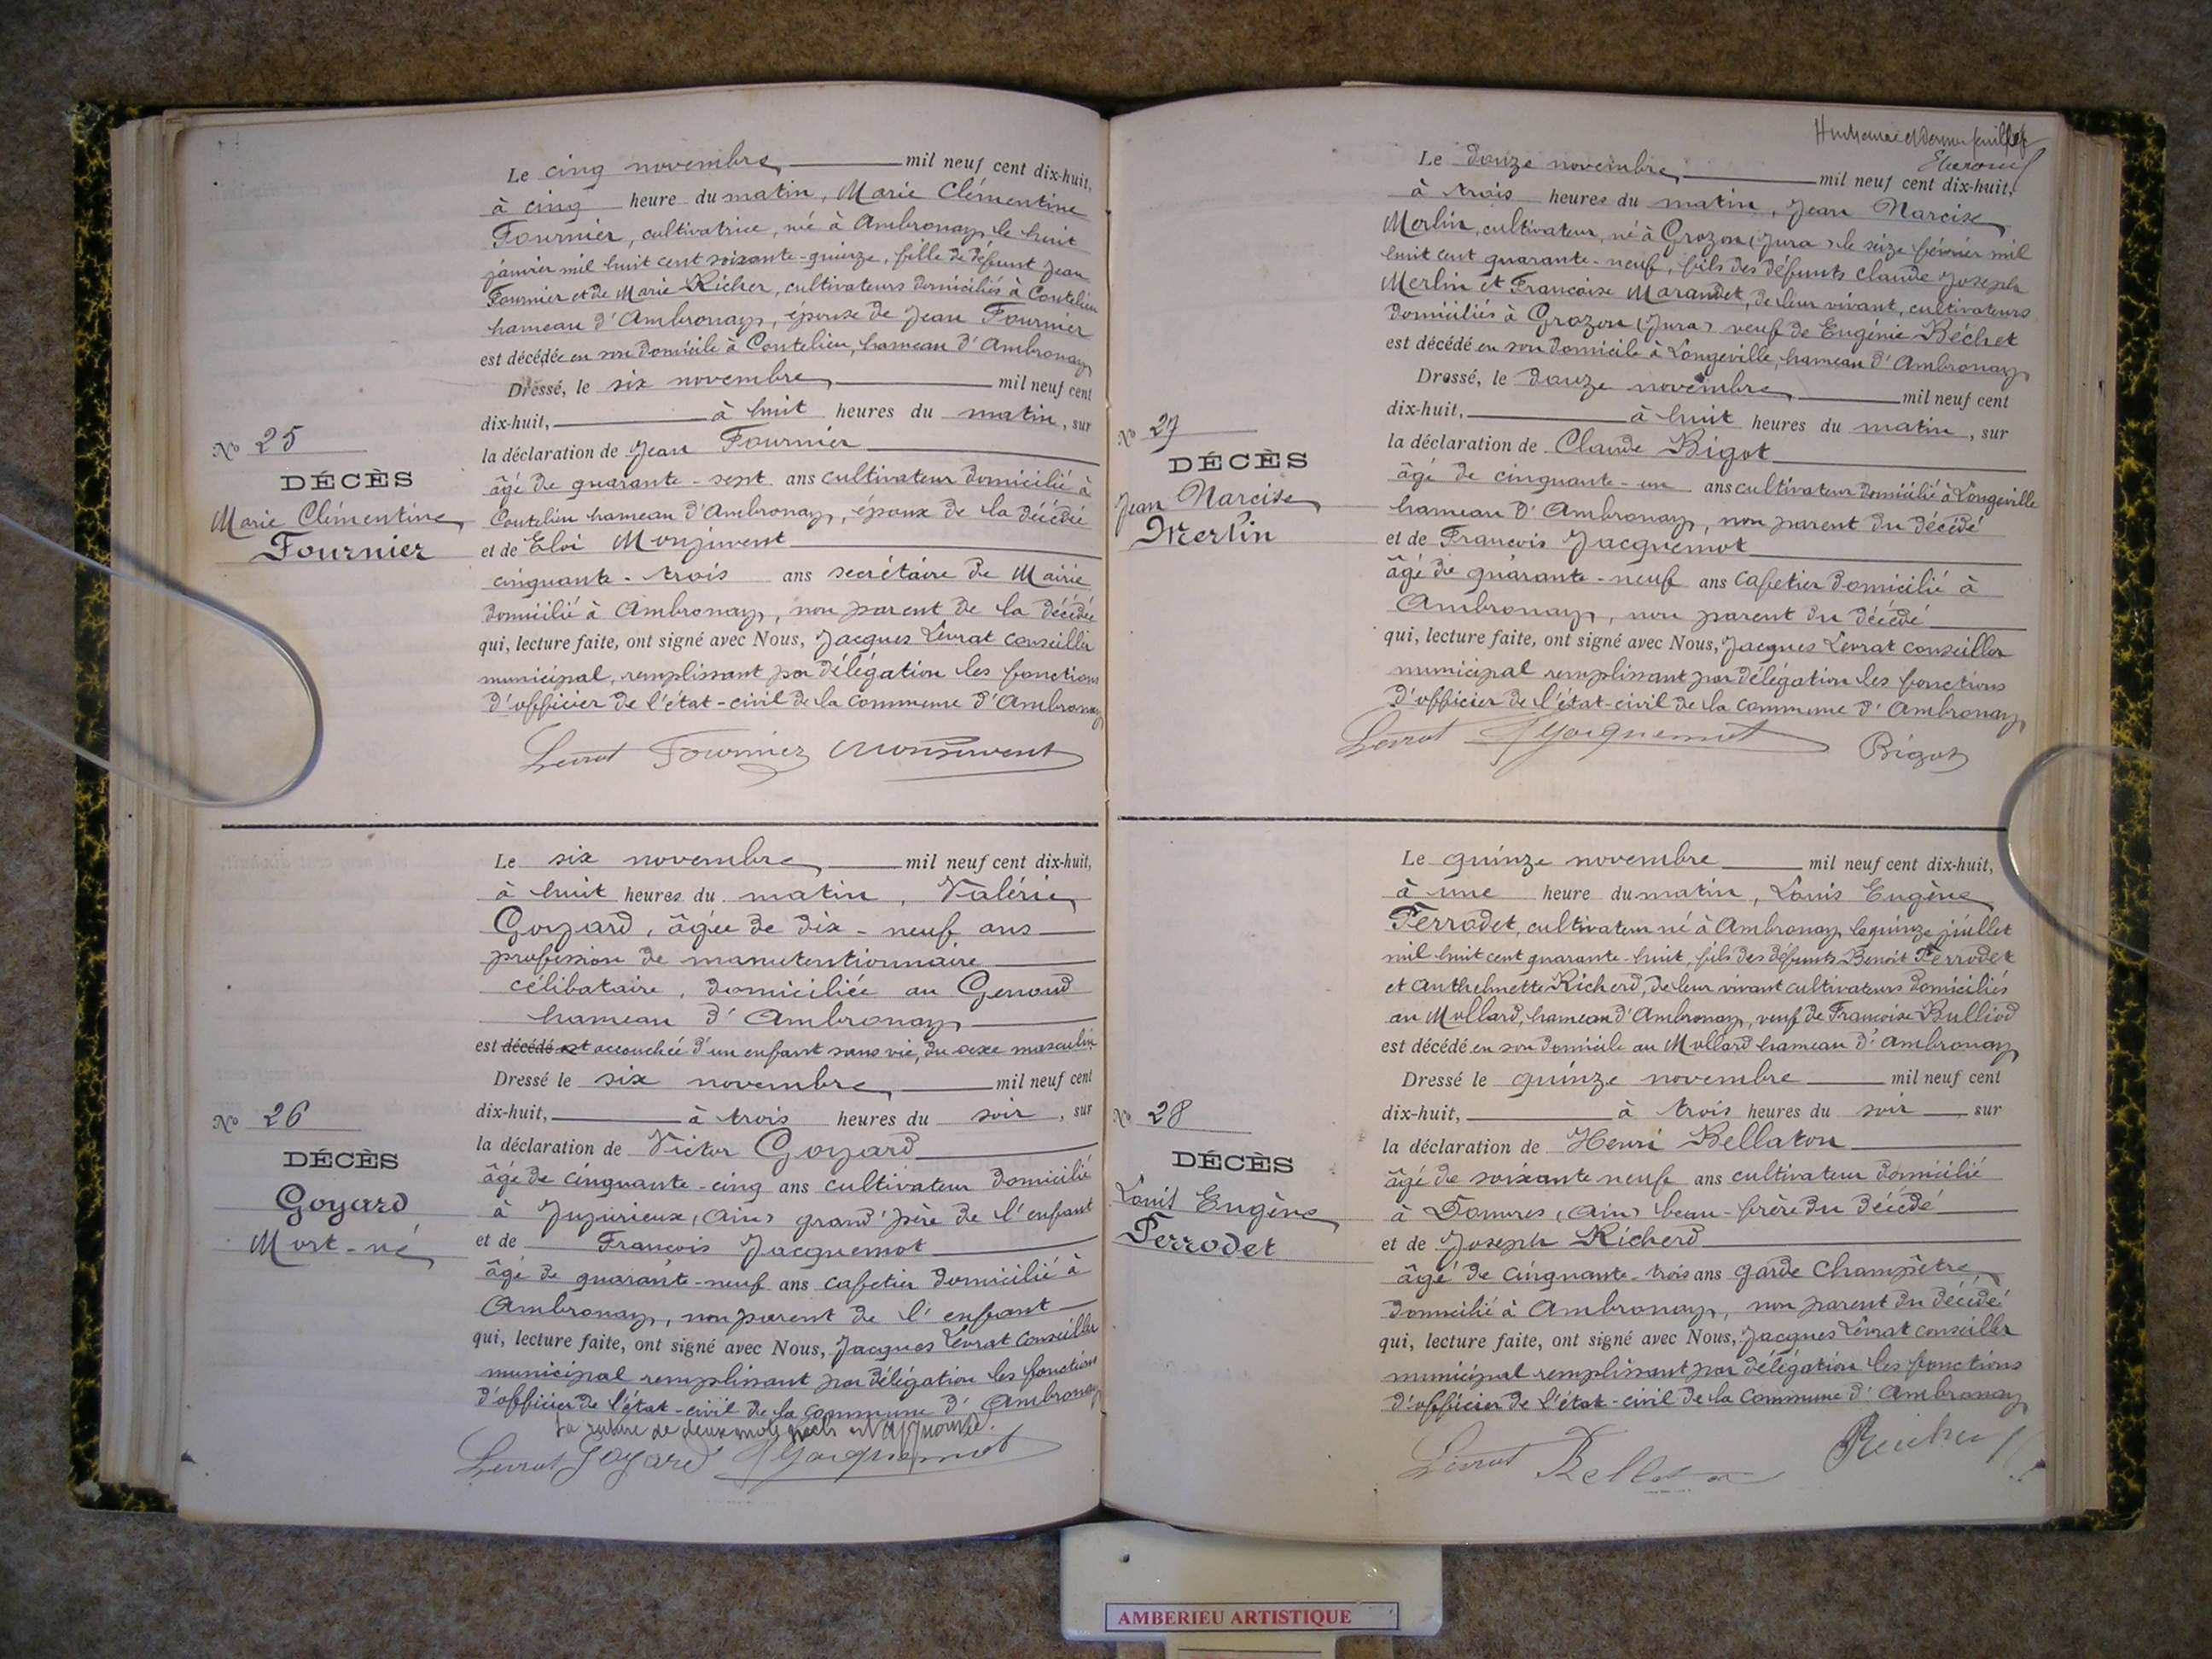 Le cinq novembre mil neuf cent dix-huit,
à cinq heure du matin, Marie Clémentine
Fournier, cultivatrice, né à Ambronay le huit
janvier mil huit cent soixante-quinze, fille de défunt Jean
Fournier et de Marie Richer, cultivateurs domiciliés à Coutelieu
hameau d'Ambronay, épouse de Jean Fournier
est décédée en son domicile à Coutelieu, hameau d'Ambronay
Dressé, le six novembre mil neuf cent
dix-huit, à huit heures du matin, sur
la déclaration de Jean Fournier
âgé de quarante-sept ans cultivateur domicilié à
Coutelieu hameau d'Ambronay, époux de la décédée
et de Eloi Monjuvent
cinquante-trois ans secrétaire de Mairie
domicilié à Ambronay, non parent de la décédée
qui, lecture faite, ont signé avec Nous, Jacques Levrat conseiller
municipal, remplissant par délégation les fonctions
d'officier de l'état-civil de la commune d'Ambronay
Levrat Fournier Monjuvent
No 25
DÉCÈS
Marie Clémentine
Fournier
Le six novembre mil neuf cent dix-huit,
à huit heures du matin, Valérie
Goyard, âgée de dix-neuf ans
profession de manutentionnaire
célibataire, domiciliée au Genoud
hameau d'Ambronay
est décédé est accouchée d'un enfant sans vie, du sexe masculin
Dressé le six novembre mil neuf cent
dix-huit, à trois heures du soir, sur
la déclaration de Victor Goyard
âgé de cinquante-cinq ans cultivateur domicilié
à Jujurieux (Ain) grand'père de l'enfant
et de François Jacquemot
âgé de quarante-neuf ans cafetier domicilié à
Ambronay, non parent de l'enfant
qui, lecture faite, ont signé avec Nous, Jacques Levrat conseiller
municipal remplissant par délégation les fonctions
d'officier de l'état-civil de la commune d'Ambronay
la rature de deux mots nuls est approuvée.
Levrat Goyard Jacquemot
No 26
DÉCÈS
Goyard
Mort-né
feuillet
Le douze novembre mil neuf cent dix-huit,
à trois heures du matin, Jean Narcise
Merlin, cultivateur, né à Grozon (Jura) le seize février mil
huit cent quarante-neuf, fils des défunts Claude Joseph
Merlin et Françoise Marandet, de leur vivant, cultivateurs
domiciliés à Grozon (Jura) veuf de Eugénie Béchet
est décédé en son domicile à Longeville, hameau d'Ambronay
Dressé, le douze novembre mil neuf cent
dix-huit, à huit heures du matin, sur
la déclaration de Claude Bigot
âgé de cinquante-un ans cultivateur domicilié à Longeville
hameau d'Ambronay, non parent du décédé
et de François Jacquemot
âgé de quarante-neuf ans cafetier domicilié à
Ambronay, non parent du décédé
qui, lecture faite, ont signé avec Nous, Jacques Levrat conseiller
municipal remplissant par délégation les fonctions
d'officier de l'état-civil de la commune d'Ambronay
Levrat Jacquemot Bigot
No 27
DÉCÈS
Jean Narcise
Merlin
Le quinze novembre mil neuf cent dix-huit,
à une heure du matin, Louis Eugène
Ferrodet, cultivateur né à Ambronay le quinze juillet
mil huit cent quarante-huit, fils des défunts Benoit Ferrodet
et Anthelmette Richerd, de leur vivant cultivateurs domiciliés
au Mollard, hameau d'Ambronay, veuf de Françoise Bulliod
est décédé en son domicile au Mollard hameau d'Ambronay
Dressé le quinze novembre mil neuf cent
dix-huit, à trois heures du soir sur
la déclaration de Henri Bellaton
âgé de soixante neuf ans cultivateur domicilié
à Douvres (Ain) beau-frère du décédé
et de Joseph Richerd
âgé de cinquante-trois ans garde champêtre
domicilié à Ambronay, non parent du décédé
qui, lecture faite, ont signé avec Nous, Jacques Levrat conseiller
municipal remplissant par délégation les fonctions
d'officier de l'état-civil de la commune d'Ambronay
Levrat Bellaton Richerd
No 28
DÉCÈS
Louis Eugène
Ferrodet
AMBERIEU ARTISTIQUE